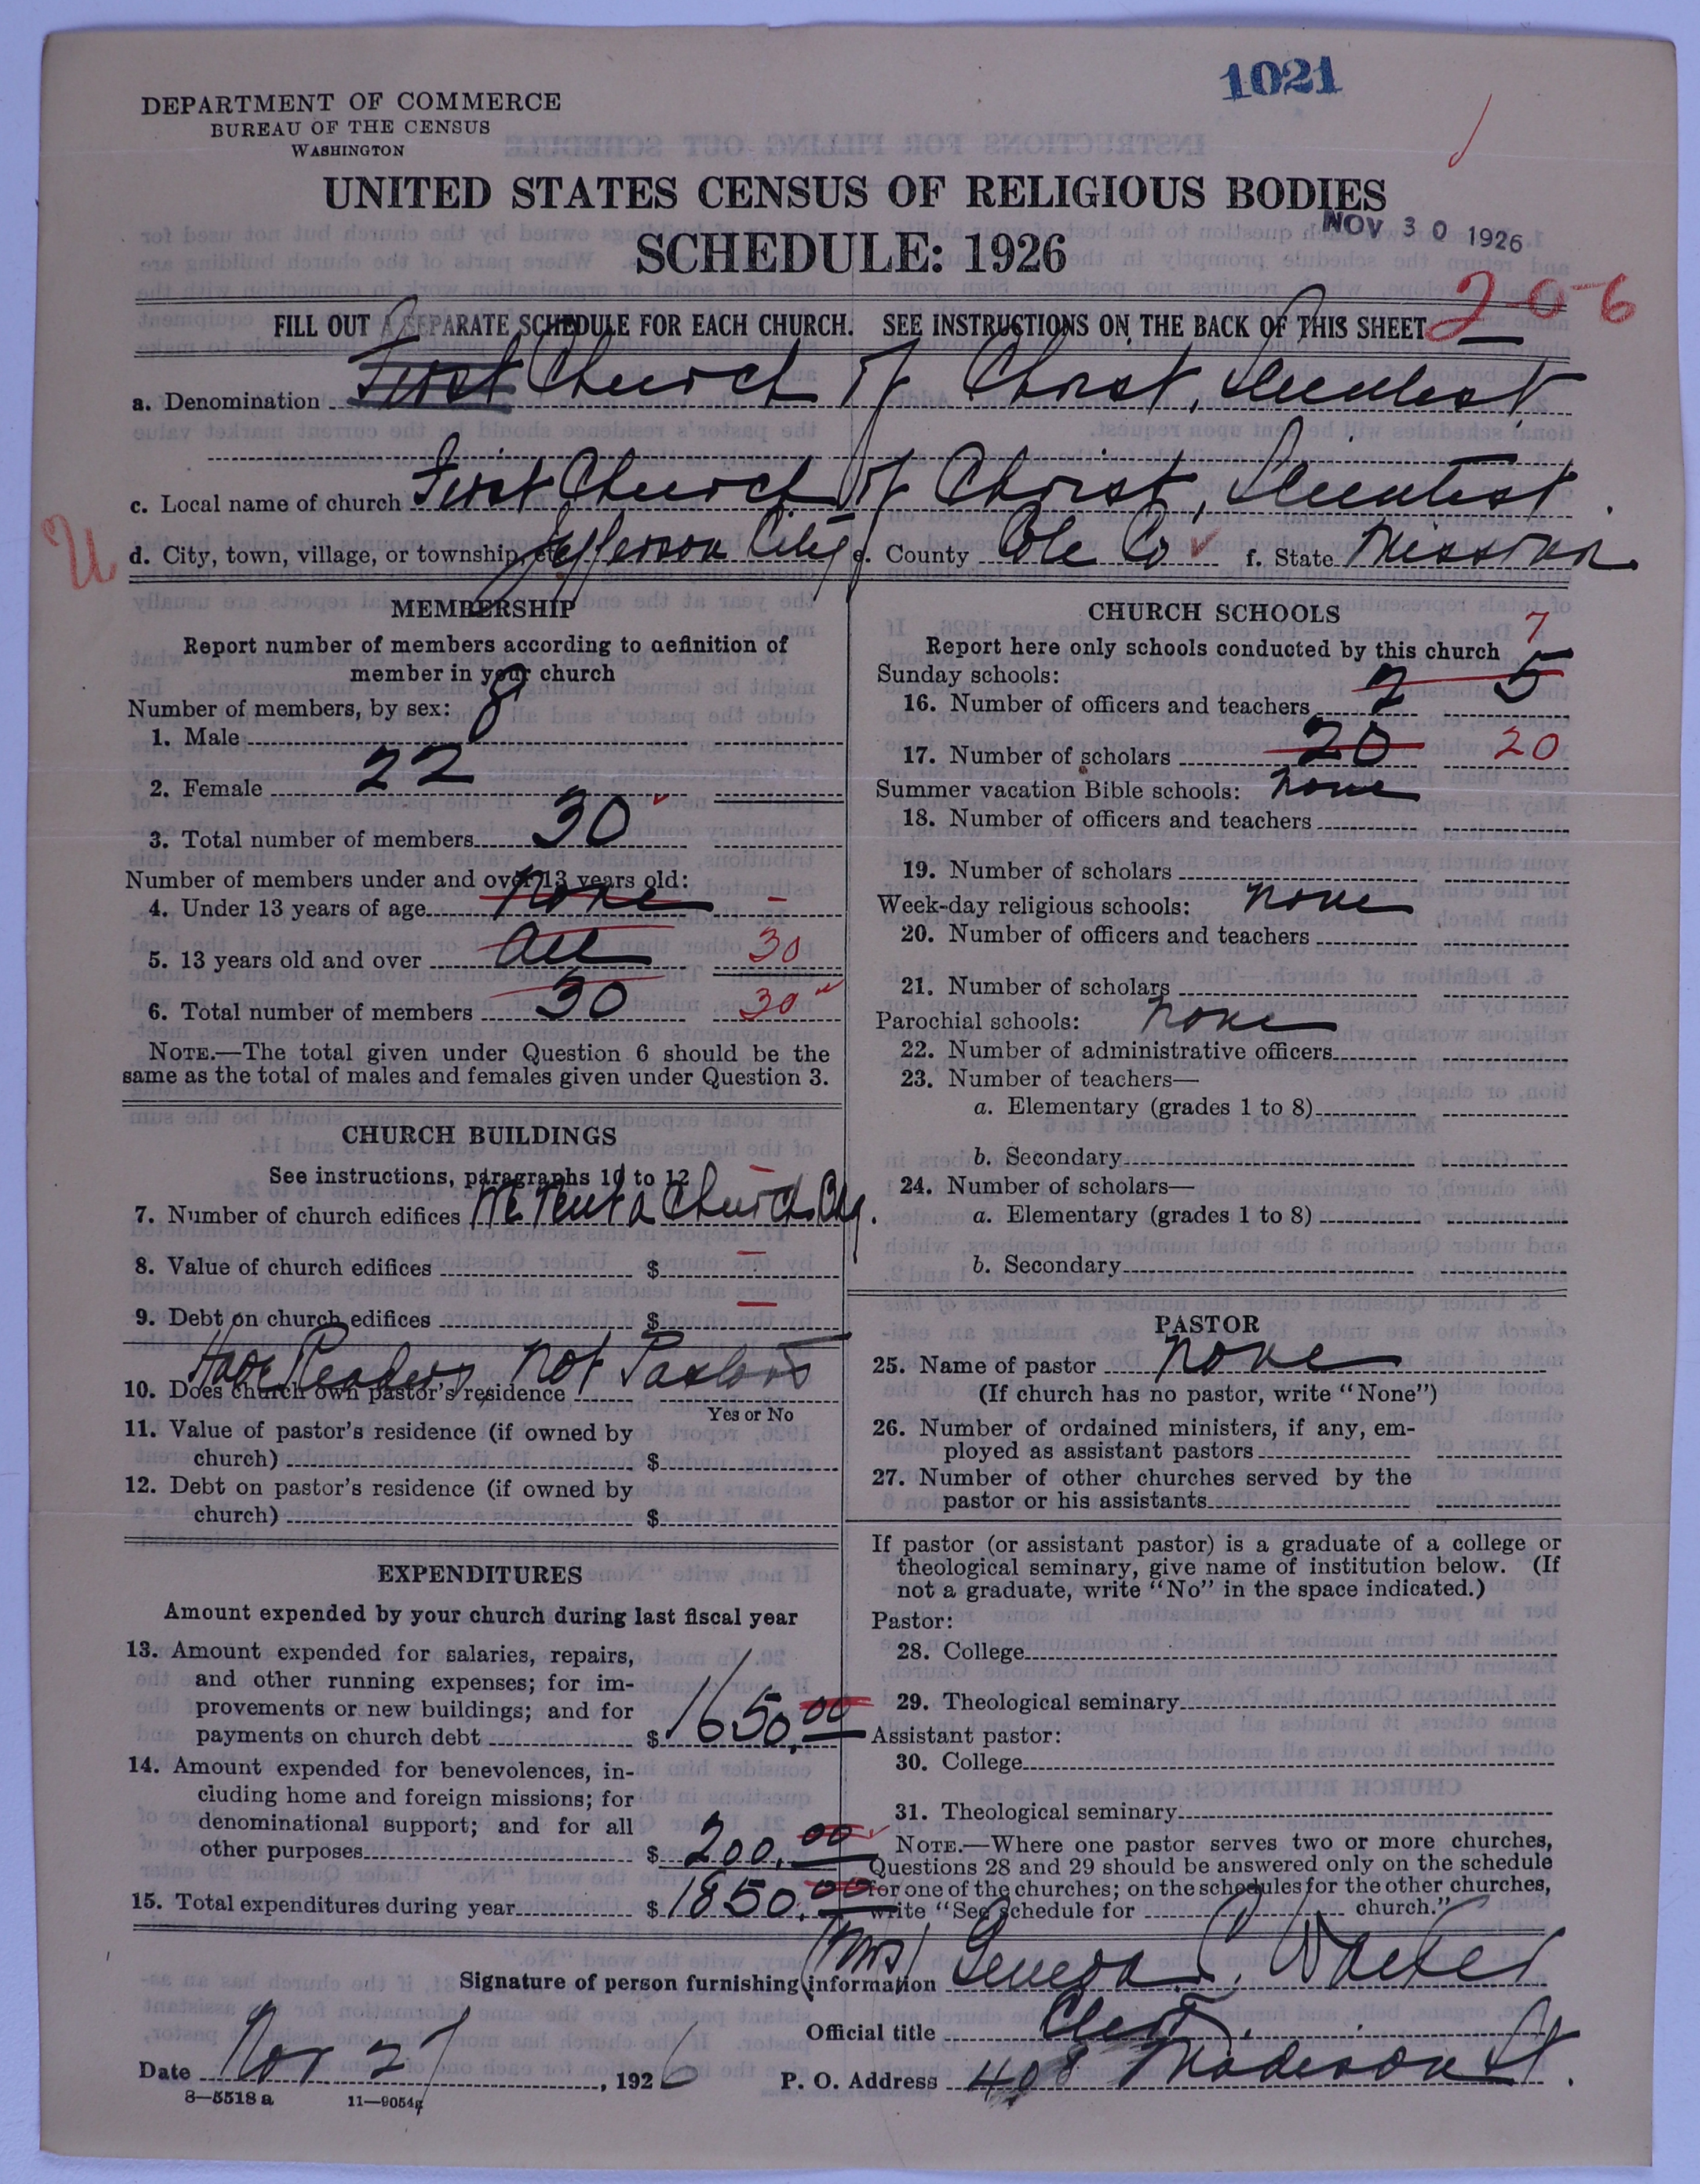 1021
DEPARTMENT OF COMMERCE
BUREAU OF THE CENSUS
WASHINGTON
UNITED STATES CENSUS OF RELIGIOUS BODIES
SCHEDULE: 1926
NOV 30 1926
2-0-6
FILL OUT A SEPARATE SCHEDULE FOR EACH CHURCH. SEE INSTRUCTIONS ON THE BACK OF THIS SHEET
a. Denomination First Church of Christ, Scientist
c. Local name of church First Church of Christ, Scientist.
U
d. City, town, village, or township, etc. Jefferson City e. County Cole Co f. State Missouri
MEMBERSHIP
Report number of members according to definition of
member in your church
Number of members, by sex:
1. Male 8
2. Female 22
3. Total number of members 30
Number of members under and over 13 years old:
4. Under 13 years of age none -
5. 13 years old and over all 30
6. Total number of members 30 30
NOTE.—The total given under Question 6 should be the
same as the total of males and females given under Question 3.
CHURCH BUILDINGS
See instructions, paragraphs 10 to 12
7. Number of church edifices We Rent a Church Bldg. -
8. Value of church edifices $ -
9. Debt on church edifices $ -
Have Readers not Pastors
10. Does church own pastor's residence
Yes or No
11. Value of pastor's residence (if owned by
church) $
12. Debt on pastor's residence (if owned by
church) $
EXPENDITURES
Amount expended by your church during last fiscal year
13. Amount expended for salaries, repairs,
and other running expenses; for im-
provements or new buildings; and for
payments on church debt $ 1650.00
14. Amount expended for benevolences, in-
cluding home and foreign missions; for
denominational support; and for all
other purposes $ 200.00
15. Total expenditures during year $ 1850.00
CHURCH SCHOOLS
Report here only schools conducted by this church
Sunday schools: 7
16. Number of officers and teachers 2 5
17. Number of scholars 20 20
Summer vacation Bible schools: none
18. Number of officers and teachers
19. Number of scholars
Week-day religious schools: none
20. Number of officers and teachers
21. Number of scholars
Parochial schools: none
22. Number of administrative officers
23. Number of teachers—
a. Elementary (grades 1 to 8)
b. Secondary
24. Number of scholars—
a. Elementary (grades 1 to 8)
b. Secondary
PASTOR
25. Name of pastor none
(If church has no pastor, write "None")
26. Number of ordained ministers, if any, em-
ployed as assistant pastors
27. Number of other churches served by the
pastor or his assistants
If pastor (or assistant pastor) is a graduate of a college or
theological seminary, give name of institution below. (If
not a graduate, write "No" in the space indicated.)
Pastor:
28. College
29. Theological seminary
Assistant pastor:
30. College
31. Theological seminary
NOTE.—Where one pastor serves two or more churches,
Questions 28 and 29 should be answered only on the schedule
for one of the churches; on the schedules for the other churches,
write "See schedule for church."
Signature of person furnishing information (Mrs) Geneva C. Walker
Official title Clerk.
Date Nov 27, 1926
P. O. Address 408 Madison St.
8—5518 a 11—9054